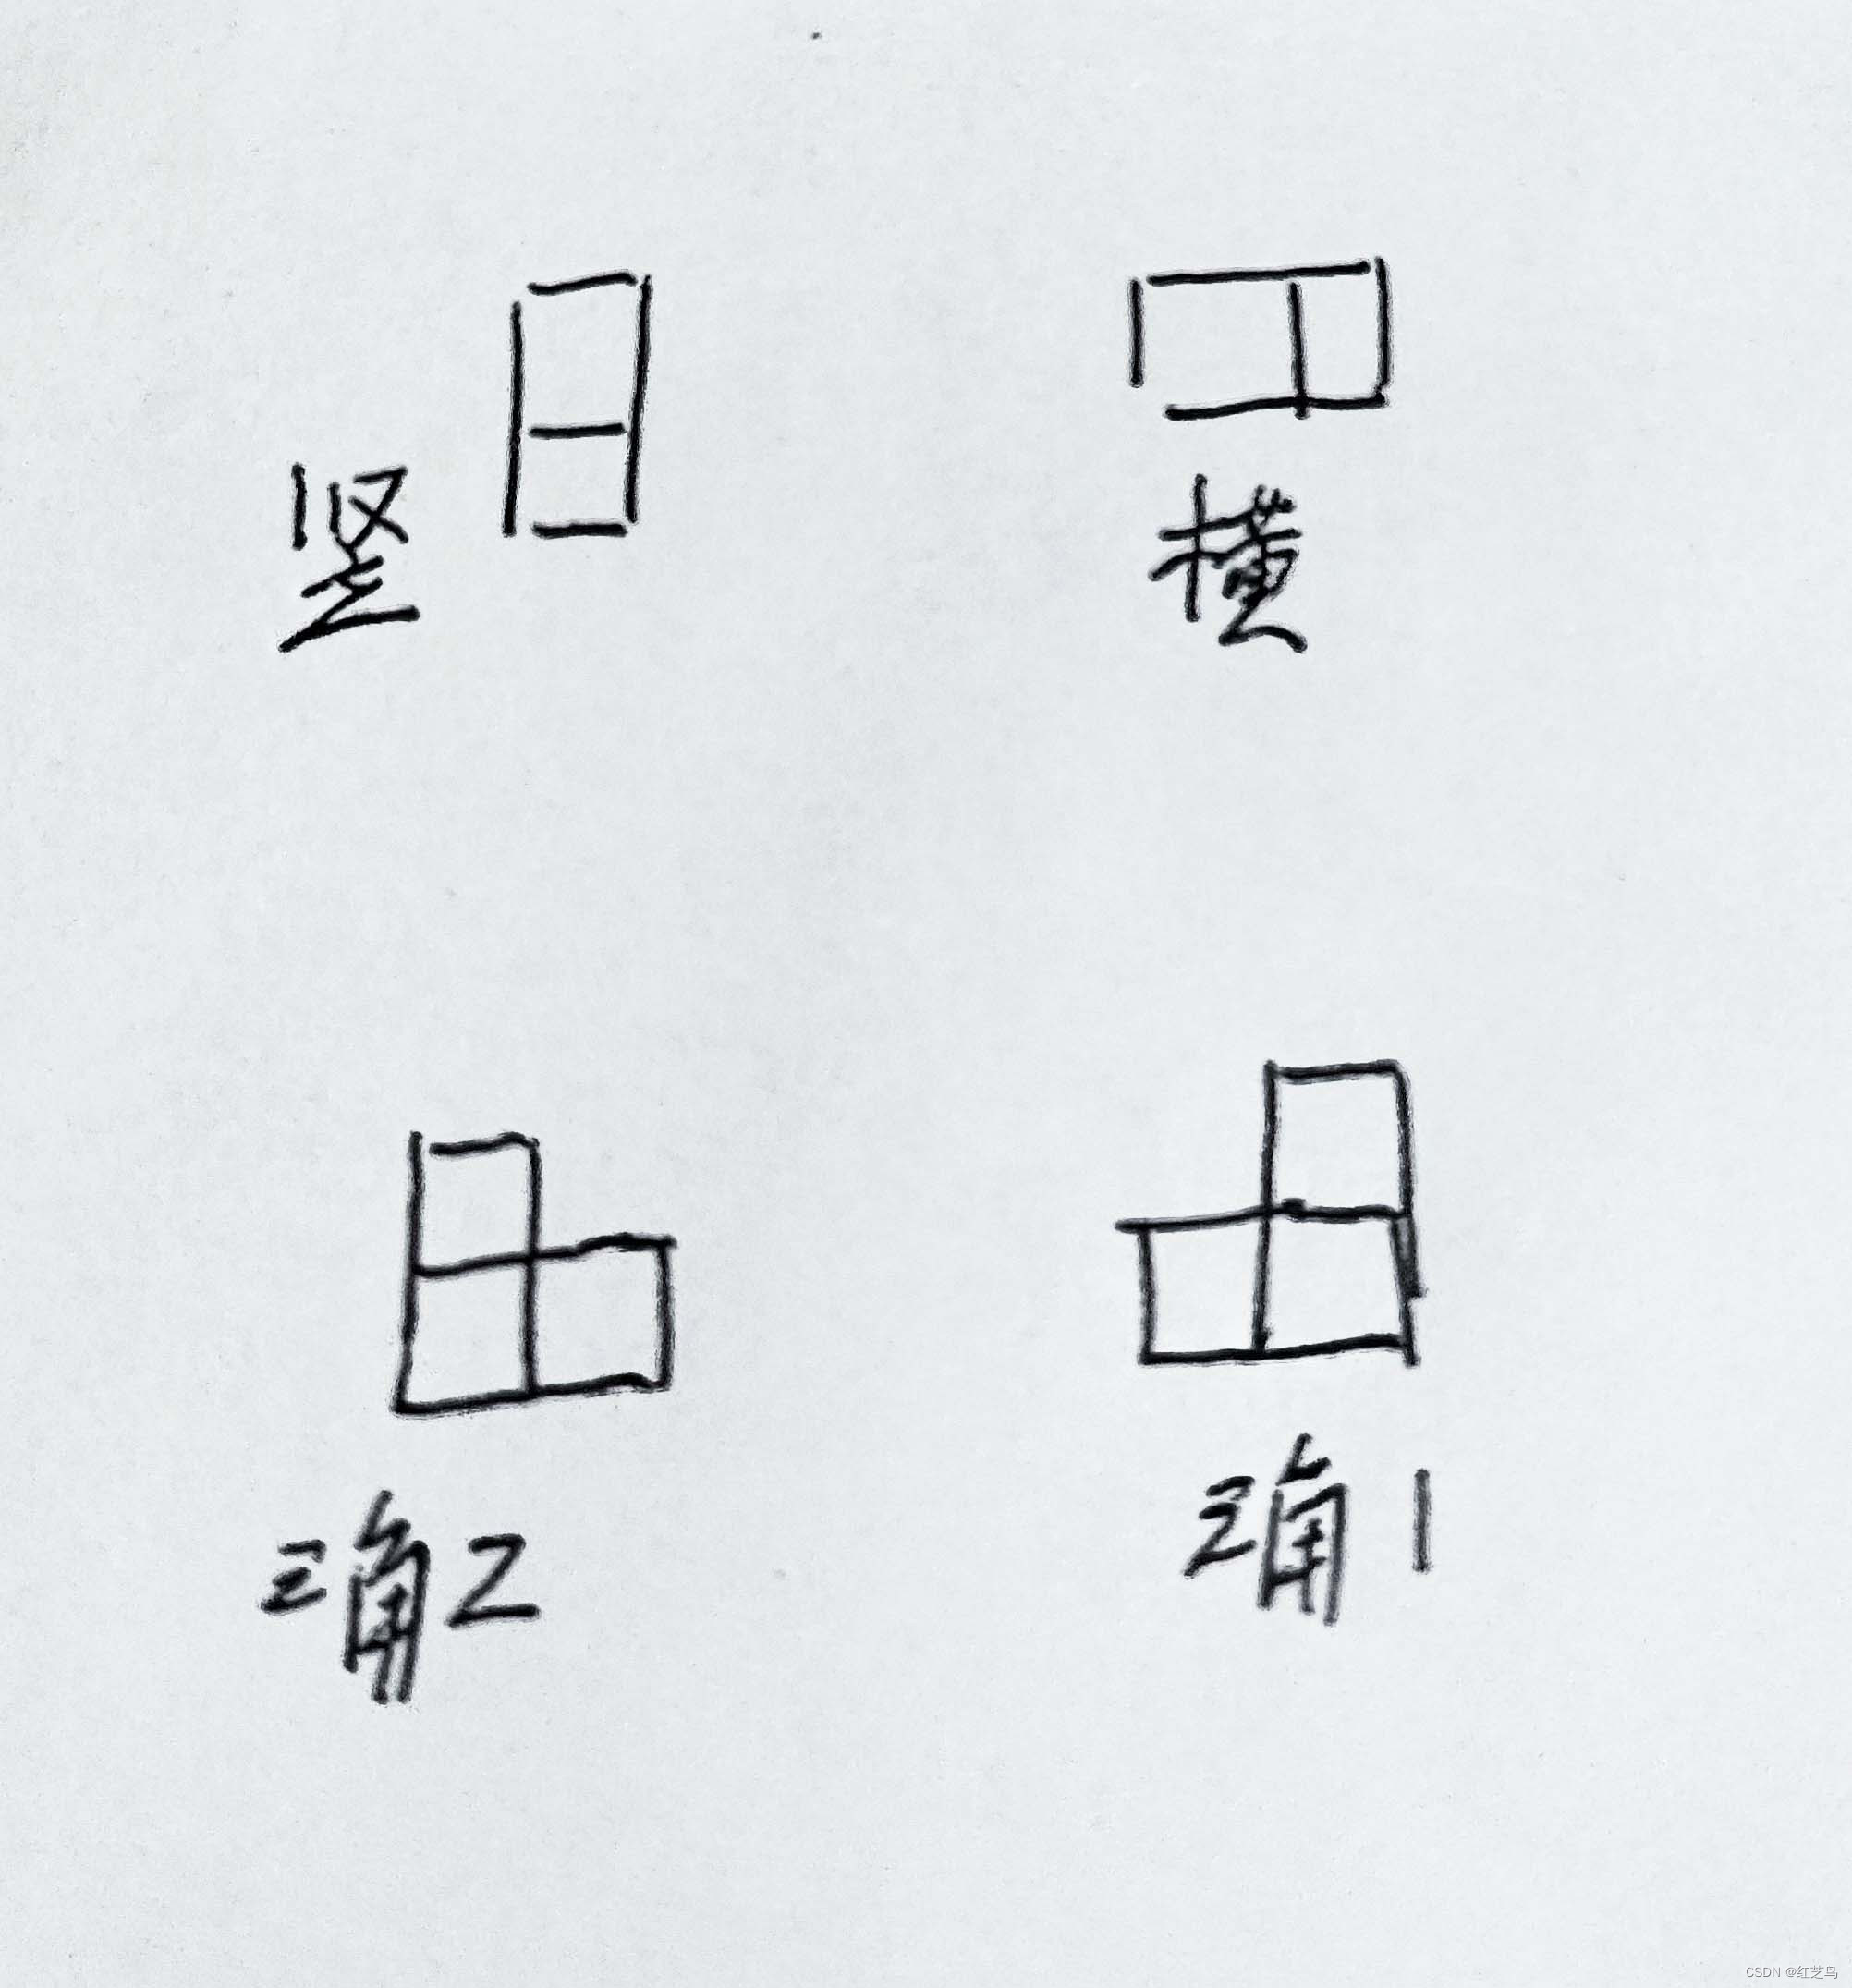 竖
横
三角2
三角1
CSDN @红芝鸟